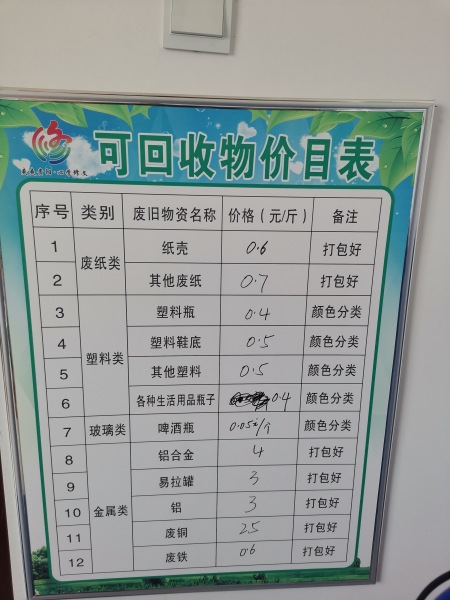 可回收物价目表
序号 类别 废旧物资名称 价格（元/斤） 备注
1 废纸类 纸壳 0.6 打包好
2 其他废纸 0.7 打包好
3 塑料类 塑料瓶 0.4 颜色分类
4 塑料鞋底 0.5 颜色分类
5 其他塑料 0.5 颜色分类
6 各种生活用品瓶子 0.4 颜色分类
7 玻璃类 啤酒瓶 颜色分类
8 金属类 铝合金 4 打包好
9 易拉罐 3 打包好
10 铝 3 打包好
11 废铜 25 打包好
12 废铁 0.6 打包好